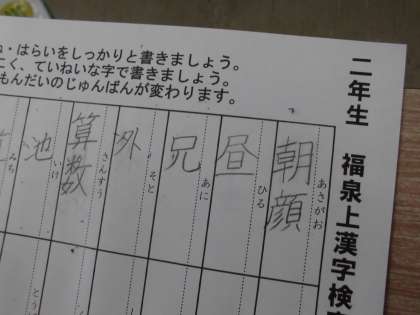 二年生 福泉上漢字検
・はらいをしっかりと書きましょう。
こく、ていねいな字で書きましょう。
もんだいのじゅんばんが変わります。
あさがお
朝顔
ひる
昼
あに
兄
そと
外
さんすう
算数
いけ
池
みち